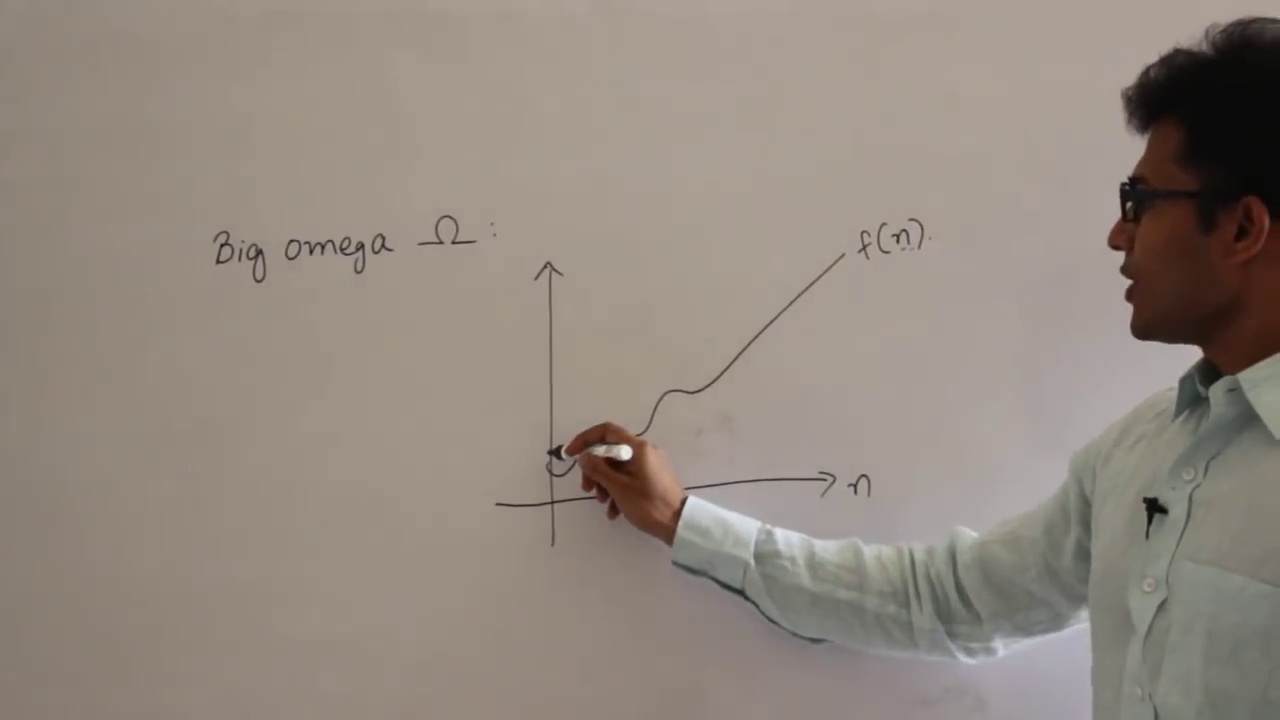 Big omega Ω:
f(n).
n